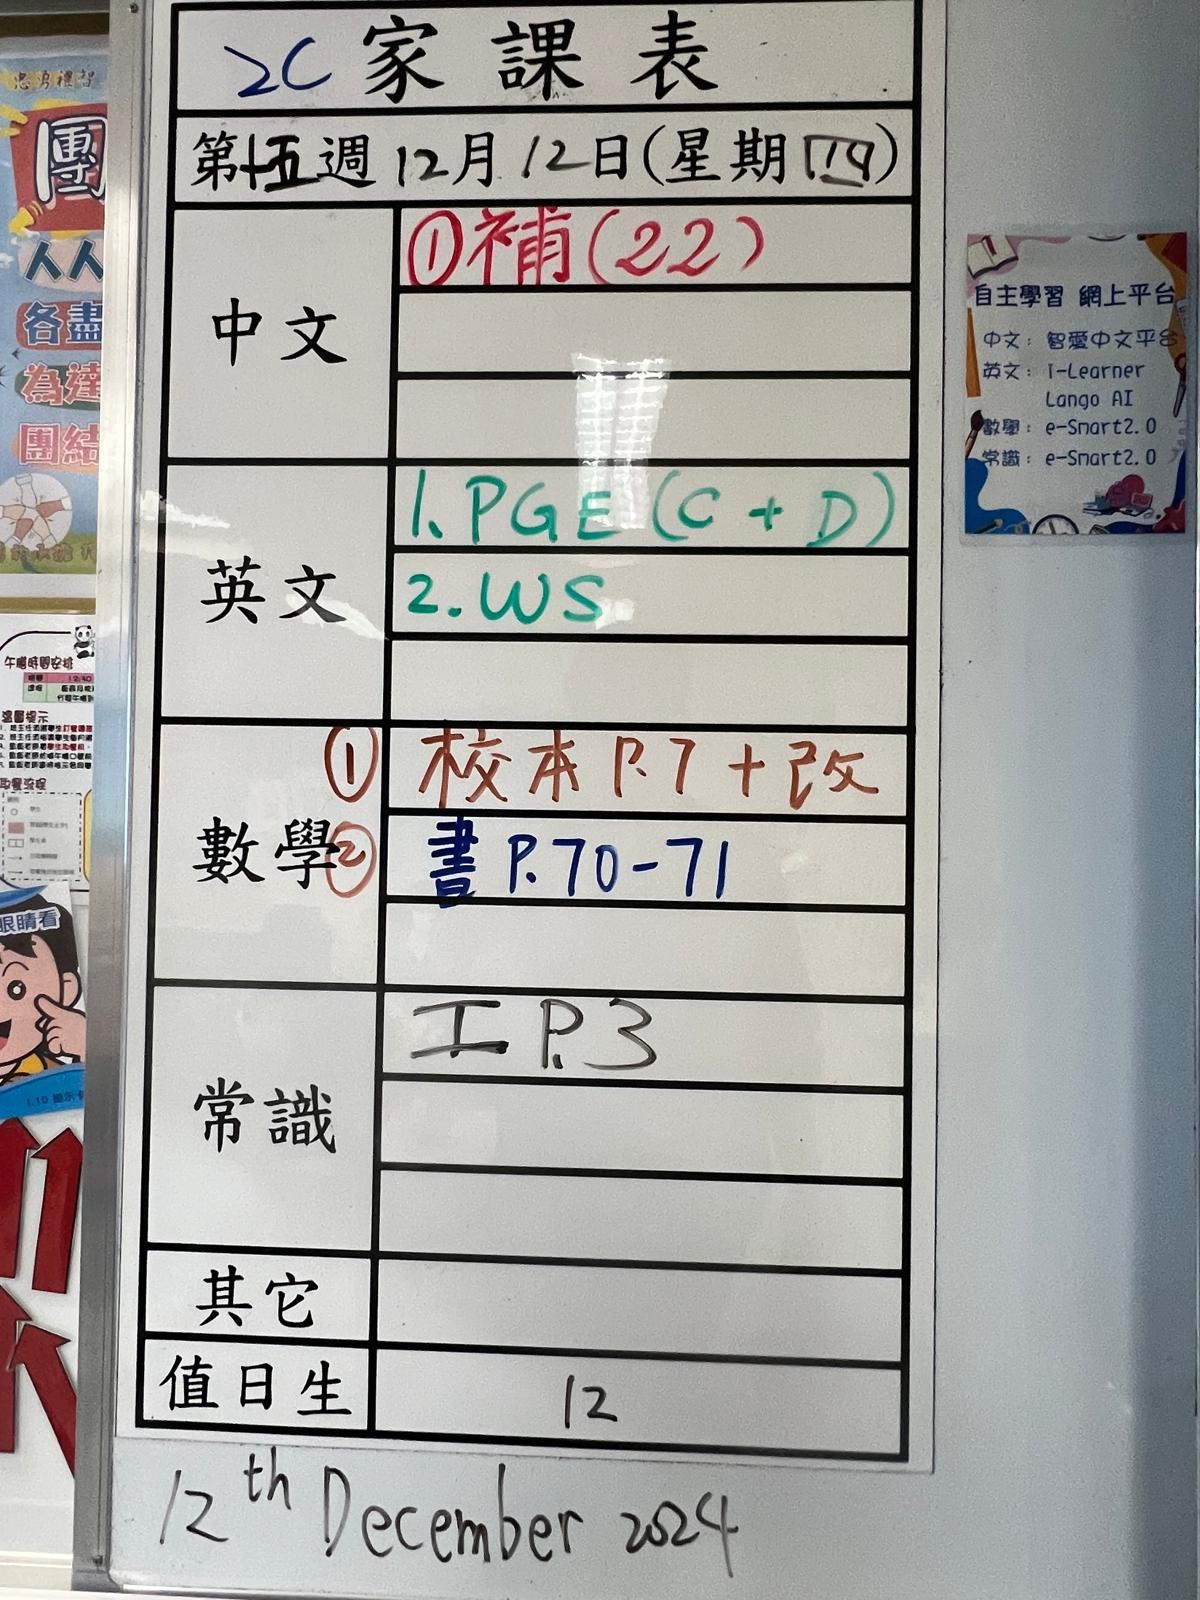 2C 家課表
第十五週 12月12日(星期四)
中文
①補(22)
英文
1. PGE (C + D)
2. WS
數學
① 校本 P.7 + 改
② 書 P.70-71
常識
工 P.3
其它
值日生
12
12th December 2024
自主學習 網上平台
中文: 智愛中文平台
英文: i-Learner
Lango AI
數學: e-Smart2.0
常識: e-Smart2.0
團
人人
各盡
為達
團結
午膳時間安排
溫馨提示
取餐流程
眼睛看